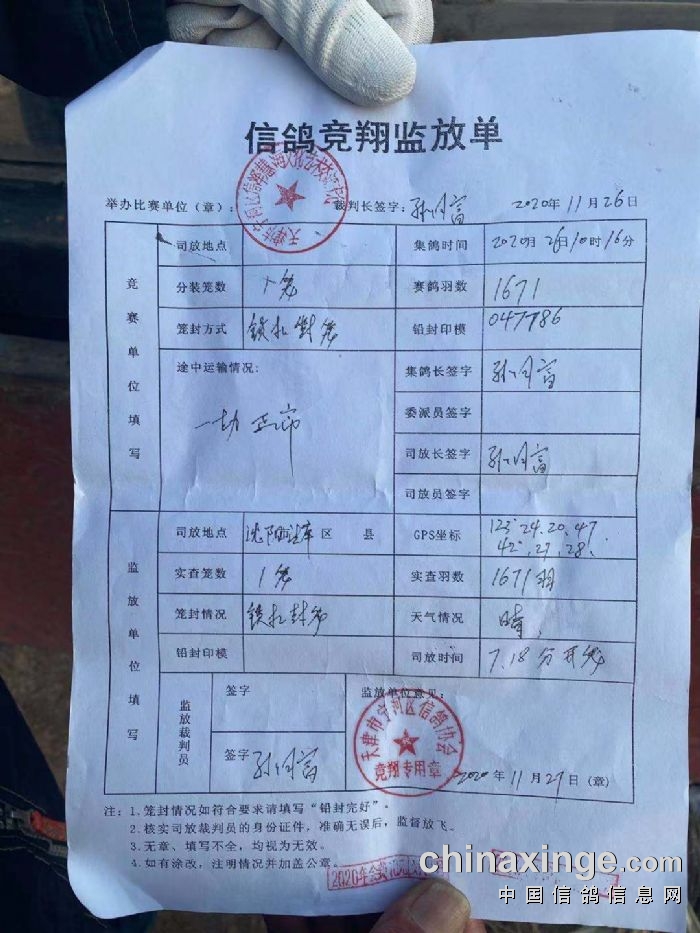 信鸽竞翔监放单
举办比赛单位（章）： 裁判长签字： 2020年11月26日
竞赛单位填写
司放地点 集鸽时间 2020月26日10时16分
分装笼数 1笼 赛鸽羽数 1671
笼封方式 铁扎封笼 铅封印模 047786
途中运输情况： 集鸽长签字
一切正常 委派员签字
司放长签字
司放员签字
监放单位填写
司放地点 沈阳法库 区 县 GPS坐标 123°24.20.47
42°.27.28.
实查笼数 1笼 实查羽数 1671羽
笼封情况 铁扎封笼 天气情况 晴
铅封印模 司放时间 7.18分开笼
监放裁判员 签字 监放单位意见：
签字 2020年11月27日（章）
天津市宁河区信鸽协会
竞翔专用章
注：1、笼封情况如符合要求请填写“铅封完好”。
2、核实司放裁判员的身份证件，准确无误后，监督放飞。
3、无章、填写不全，均视为无效。
4、如有涂改，注明情况并加盖公章。
chinaxinge.com
中国信鸽信息网